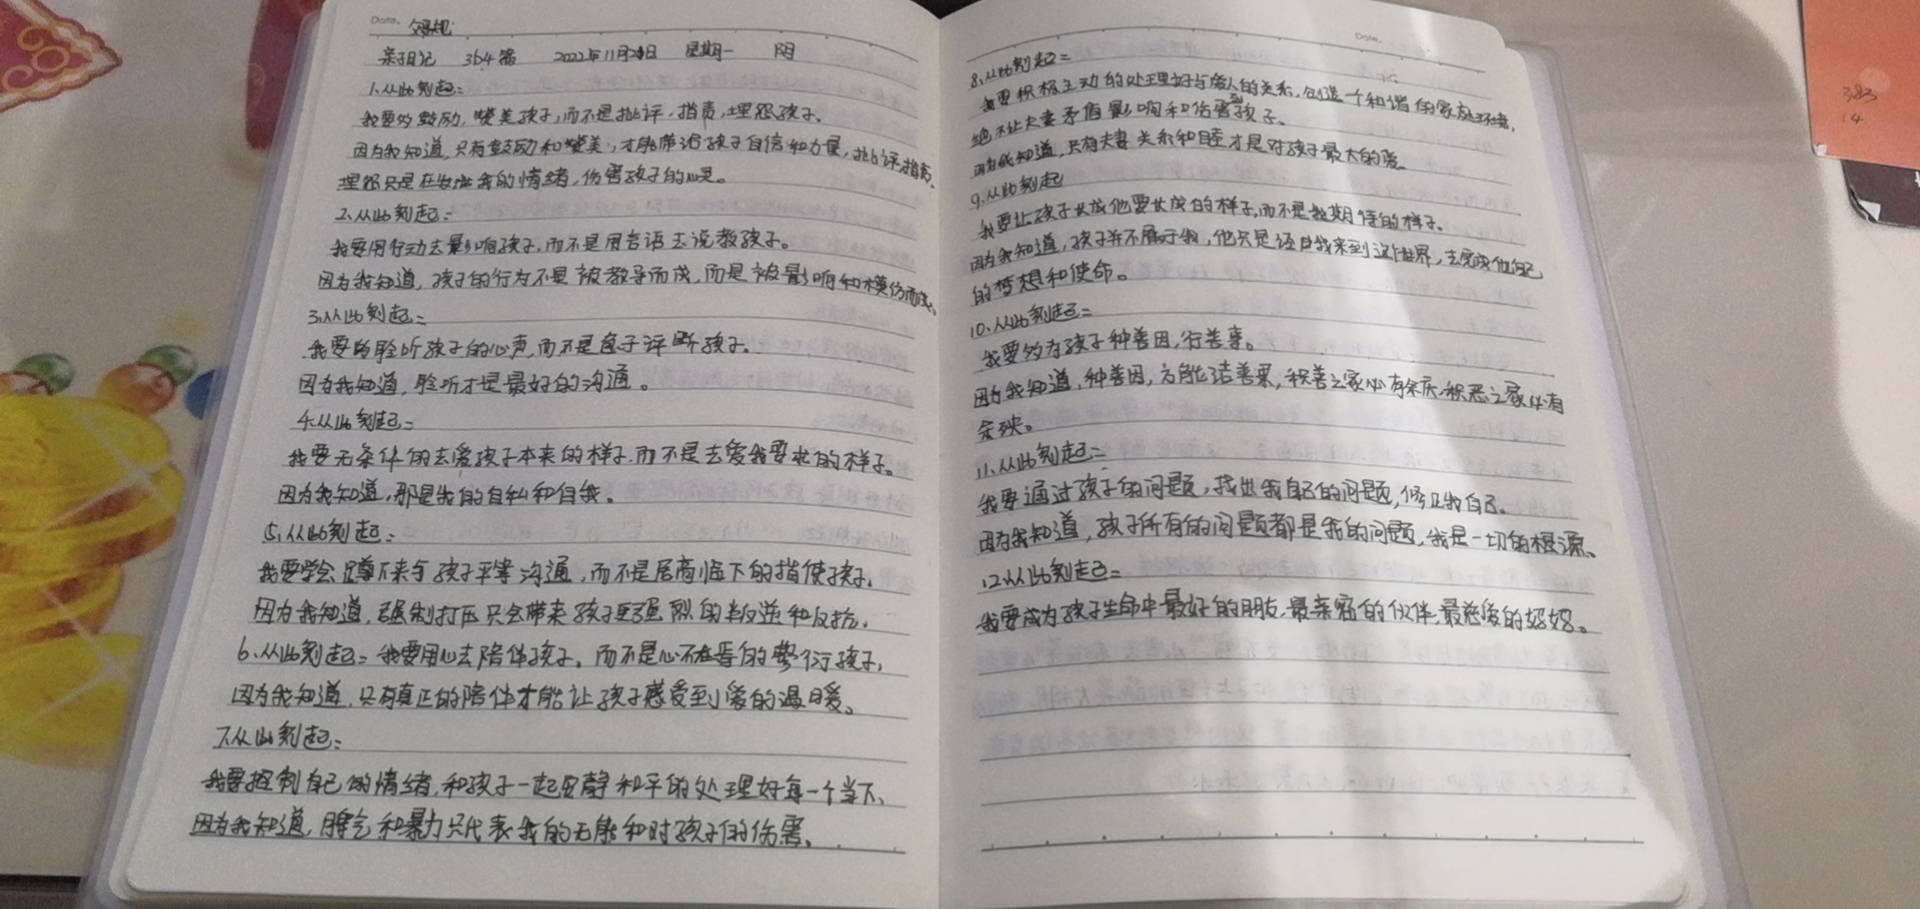 Date.
父母规
亲子日记 364篇 2022年11月28日 星期一 阴
1、从此刻起:
我要多鼓励,赞美孩子,而不是批评,指责,埋怨孩子。
因为我知道,只有鼓励和赞美,才能带给孩子自信和力量,批评,指责,
埋怨只是在发泄我的情绪,伤害孩子的心灵。
2、从此刻起:
我要用行动去影响孩子,而不是用言语去说教孩子。
因为我知道,孩子的行为不是被教导而成,而是被影响和模仿而成。
3、从此刻起:
我要多聆听孩子的心声,而不是急于评断孩子。
因为我知道,聆听才是最好的沟通。
4、从此刻起:
我要无条件的去爱孩子本来的样子,而不是去爱我要求的样子。
因为我知道,那是我的自私和自我。
5、从此刻起:
我要学会蹲下来与孩子平等沟通,而不是居高临下的指使孩子,
因为我知道,强制打压只会带来孩子更强烈的叛逆和反抗。
6、从此刻起:我要用心去陪伴孩子。而不是心不在焉的敷衍孩子,
因为我知道,只有真正的陪伴才能让孩子感受到爱的温暖。
7、从此刻起:
我要控制自己的情绪,和孩子一起安静和平的处理好每一个当下、
因为我知道,脾气和暴力只代表我的无能和对孩子的伤害。
Date.
8、从此刻起:
我要积极主动的处理好与爱人的关系,创造一个和谐的家庭环境,
绝不让夫妻矛盾影响和伤害到孩子。
因为我知道,只有夫妻关系和睦才是对孩子最大的爱。
9、从此刻起
我要让孩子长成他要长成的样子,而不是我期待的样子。
因为我知道,孩子并不属于我,他只是经由我来到这个世界,去完成他自己
的梦想和使命。
10、从此刻起:
我要多为孩子种善因,行善事。
因为我知道,种善因,方能结善果,积善之家必有余庆,积恶之家必有
余殃。
11、从此刻起:
我要通过孩子的问题,找出我自己的问题,修正我自己。
因为我知道,孩子所有的问题都是我的问题,我是一切的根源、
12、从此刻起:
我要成为孩子生命中最好的朋友,最亲密的伙伴,最慈爱的妈妈。
383
14